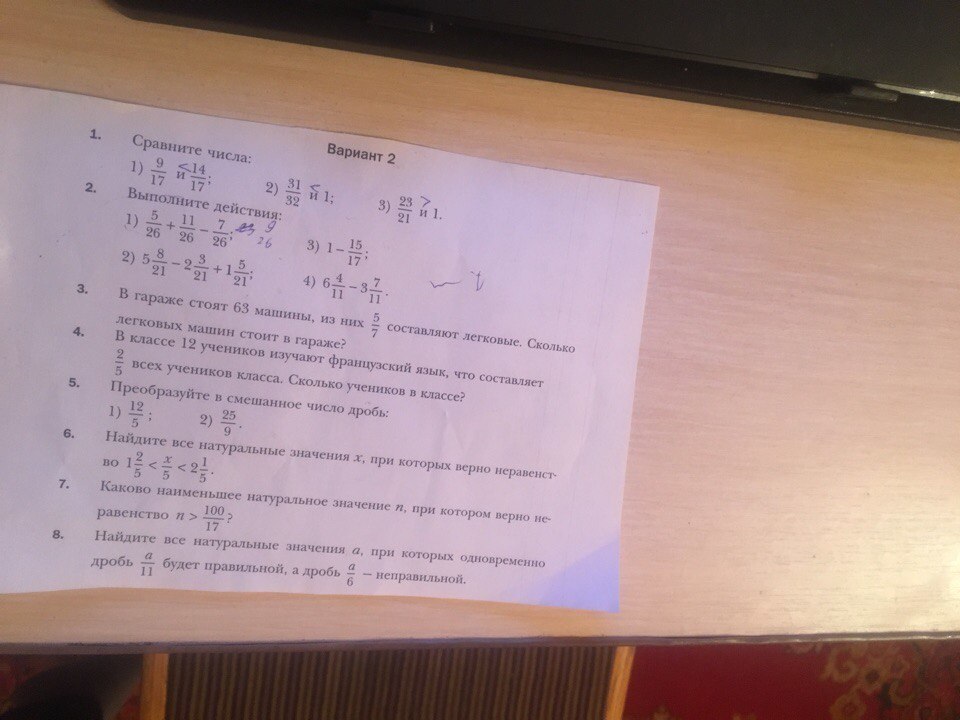 Вариант 2
1. Сравните числа:
1) 9/17 и < 14/17; 2) 31/32 и < 1; 3) 23/21 и > 1.
2. Выполните действия:
1) 5/26 + 11/26 − 7/26; 9/26 3) 1 − 15/17;
2) 5 8/21 − 2 3/21 + 1 5/21; 4) 6 4/11 − 3 7/11.
3. В гараже стоят 63 машины, из них 5/7 составляют легковые. Сколько
легковых машин стоит в гараже?
4. В классе 12 учеников изучают французский язык, что составляет
2/5 всех учеников класса. Сколько учеников в классе?
5. Преобразуйте в смешанное число дробь:
1) 12/5; 2) 25/9.
6. Найдите все натуральные значения x, при которых верно неравенст-
во 1 2/5 < x/5 < 2 1/5.
7. Каково наименьшее натуральное значение n, при котором верно не-
равенство n > 100/17?
8. Найдите все натуральные значения a, при которых одновременно
дробь a/11 будет правильной, а дробь a/6 — неправильной.